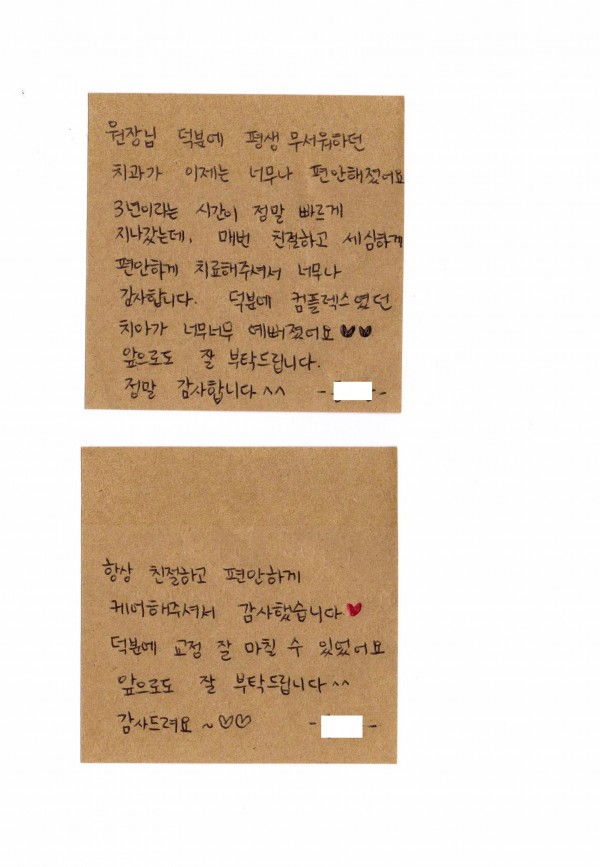 원장님 덕분에 평생 무서워하던
치과가 이제는 너무나 편안해졌어요
3년이라는 시간이 정말 빠르게
지나갔는데, 매번 친절하고 세심하게
편안하게 치료해주셔서 너무나
감사합니다. 덕분에 컴플렉스였던
치아가 너무너무 예뻐졌어요 ♥♥
앞으로도 잘 부탁드립니다.
정말 감사합니다 ^^ - -
항상 친절하고 편안하게
케어해주셔서 감사했습니다♥
덕분에 교정 잘 마칠 수 있었어요
앞으로도 잘 부탁드립니다 ^^
감사드려요 ~♡♡ - -